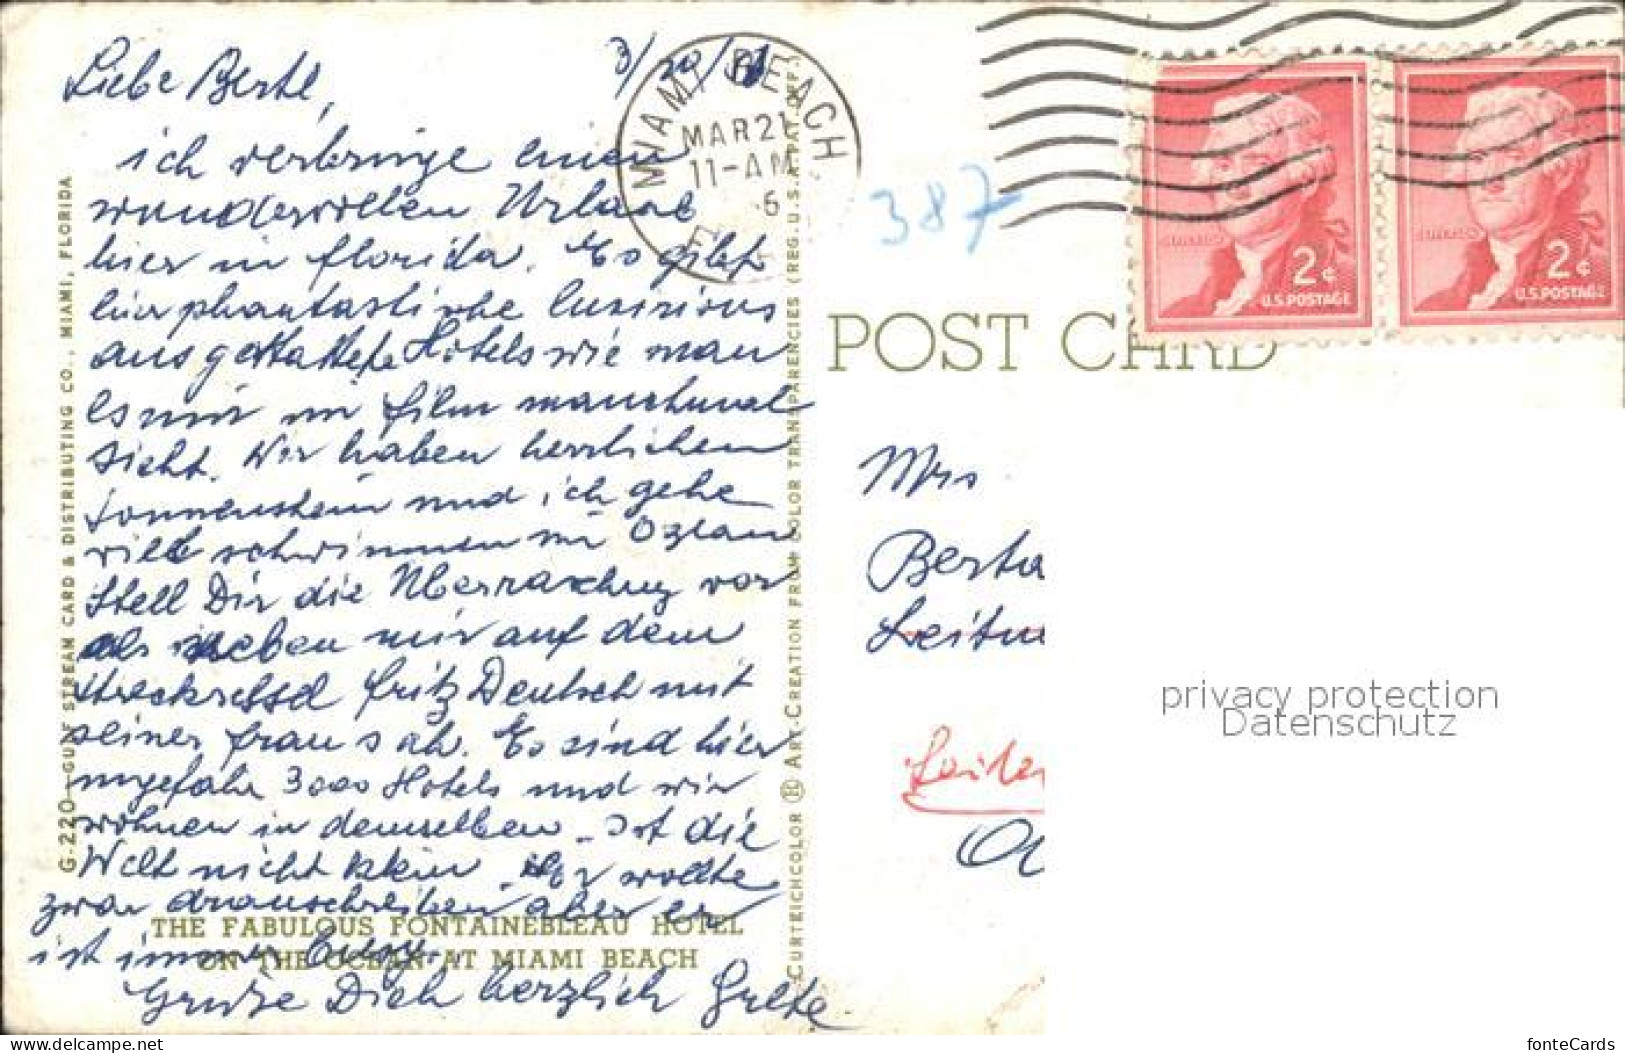 Liebe Bertl,
3/20/
ich verbringe einen
wundervollen Urlaub
hier in Florida. Es gibt
hier phantastische luxurious
ausgestattete Hotels wie man
es nur im Film manchmal
sieht. Wir haben herrlichen
Sonnenschein und ich gehe
viel schwimmen im Ozean
Stell Dir die Überraschung vor
als neben mir auf dem
Strecksessel Fritz Deutsch mit
seiner Frau sah. Es sind hier
ungefähr 3000 Hotels und wir
wohnen in demselben - Ist die
Welt nicht klein. Er wollte
zwar draufschreiben aber er
ist immer busy.
Grüße Dich herzlich Grete
THE FABULOUS FONTAINEBLEAU HOTEL
ON THE OCEAN AT MIAMI BEACH
G-220—GULF STREAM CARD & DISTRIBUTING CO., MIAMI, FLORIDA
CURTEICHCOLOR ® ART-CREATION FROM COLOR TRANSPARENCIES (REG. U.S.A. PAT. OFF.)
MIAMI BEACH
MAR 21
11-AM
6
387
2¢
U.S. POSTAGE
2¢
U.S. POSTAGE
POST CARD
Mrs
Berta
Leitn
privacy protection
Datenschutz
delcampe.net
fonteCards